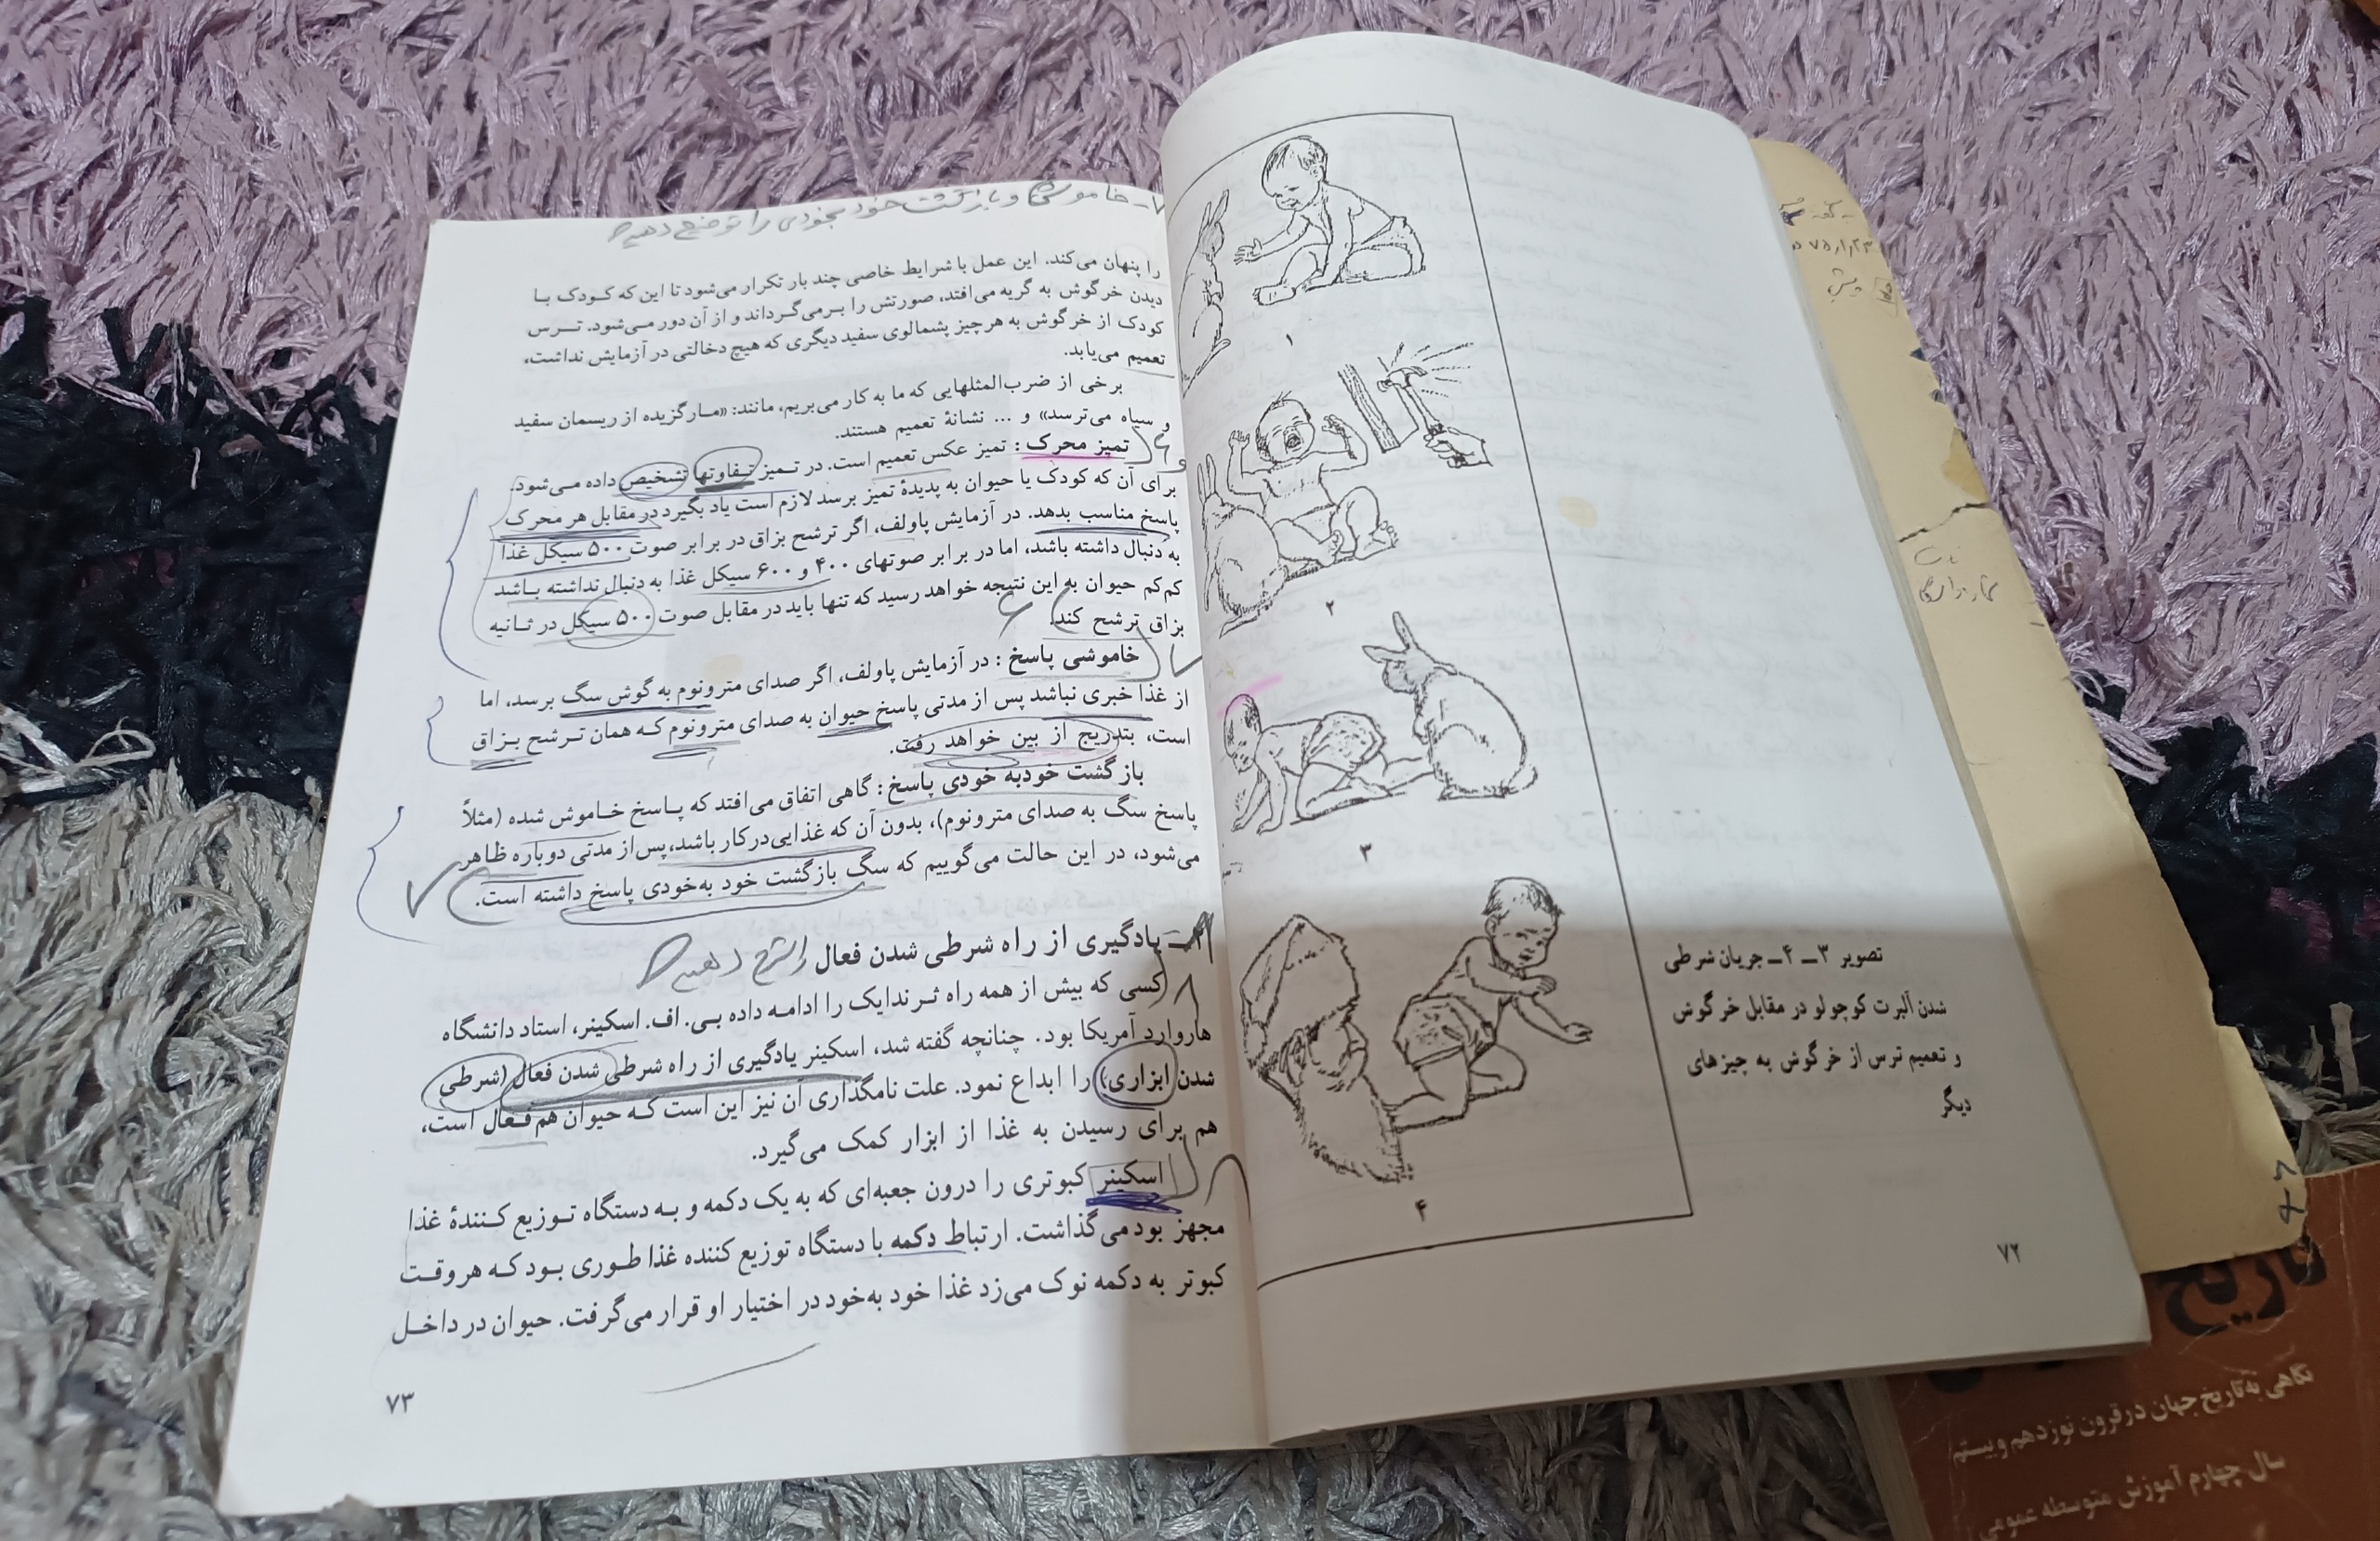 ۱
۲
۳
۴
تصویر ۳ــ۴ــ جریان شرطی
شدن آلبرت کوچولو در مقابل خرگوش
و تعمیم ترس از خرگوش به چیزهای
دیگر
۷۲
۷ــ خاموشی و بازگشت خودبخودی را توضیح دهید؟
را پنهان می‌کند. این عمل با شرایط خاصی چند بار تکرار می‌شود تا این که کودک با
دیدن خرگوش به گریه می‌افتد، صورتش را برمی‌گرداند و از آن دور می‌شود. ترس
کودک از خرگوش به هر چیز پشمالوی سفید دیگری که هیچ دخالتی در آزمایش نداشت،
تعمیم می‌یابد.
برخی از ضرب‌المثلهایی که ما به کار می‌بریم، مانند: «مارگزیده از ریسمان سفید
و سیاه می‌ترسد» و ... نشانهٔ تعمیم هستند.
تمیز محرک : تمیز عکس تعمیم است. در تمیز تفاوتها تشخیص داده می‌شود.
برای آن که کودک یا حیوان به پدیدهٔ تمیز برسد لازم است یاد بگیرد در مقابل هر محرک
پاسخ مناسب بدهد. در آزمایش پاولف، اگر ترشح بزاق در برابر صوت ۵۰۰ سیکل غذا
به دنبال داشته باشد، اما در برابر صوتهای ۴۰۰ و ۶۰۰ سیکل غذا به دنبال نداشته باشد
کم‌کم حیوان به این نتیجه خواهد رسید که تنها باید در مقابل صوت ۵۰۰ سیکل در ثانیه
بزاق ترشح کند.
خاموشی پاسخ : در آزمایش پاولف، اگر صدای مترونوم به گوش سگ برسد، اما
از غذا خبری نباشد پس از مدتی پاسخ حیوان به صدای مترونوم که همان ترشح بزاق
است، بتدریج از بین خواهد رفت.
بازگشت خودبه خودی پاسخ : گاهی اتفاق می‌افتد که پاسخ خاموش شده (مثلاً
پاسخ سگ به صدای مترونوم)، بدون آن که غذایی درکار باشد، پس از مدتی دوباره ظاهر
می‌شود، در این حالت می‌گوییم که سگ بازگشت خود به‌خودی پاسخ داشته است.
یادگیری از راه شرطی شدن فعال را شرح دهید؟
کسی که بیش از همه راه ثرندایک را ادامه داده بی. اف. اسکینر، استاد دانشگاه
هاروارد آمریکا بود. چنانچه گفته شد، اسکینر یادگیری از راه شرطی شدن فعال (شرطی
شدن ابزاری) را ابداع نمود. علت نامگذاری آن نیز این است که حیوان هم فعال است،
هم برای رسیدن به غذا از ابزار کمک می‌گیرد.
اسکینر کبوتری را درون جعبه‌ای که به یک دکمه و به دستگاه توزیع کنندهٔ غذا
مجهز بود می‌گذاشت. ارتباط دکمه با دستگاه توزیع کننده غذا طوری بود که هر وقت
کبوتر به دکمه نوک می‌زد غذا خود به‌خود در اختیار او قرار می‌گرفت. حیوان در داخل
۷۳
تاریخ
نگاهی به تاریخ جهان در قرون نوزدهم و بیستم
سال چهارم آموزش متوسطه عمومی